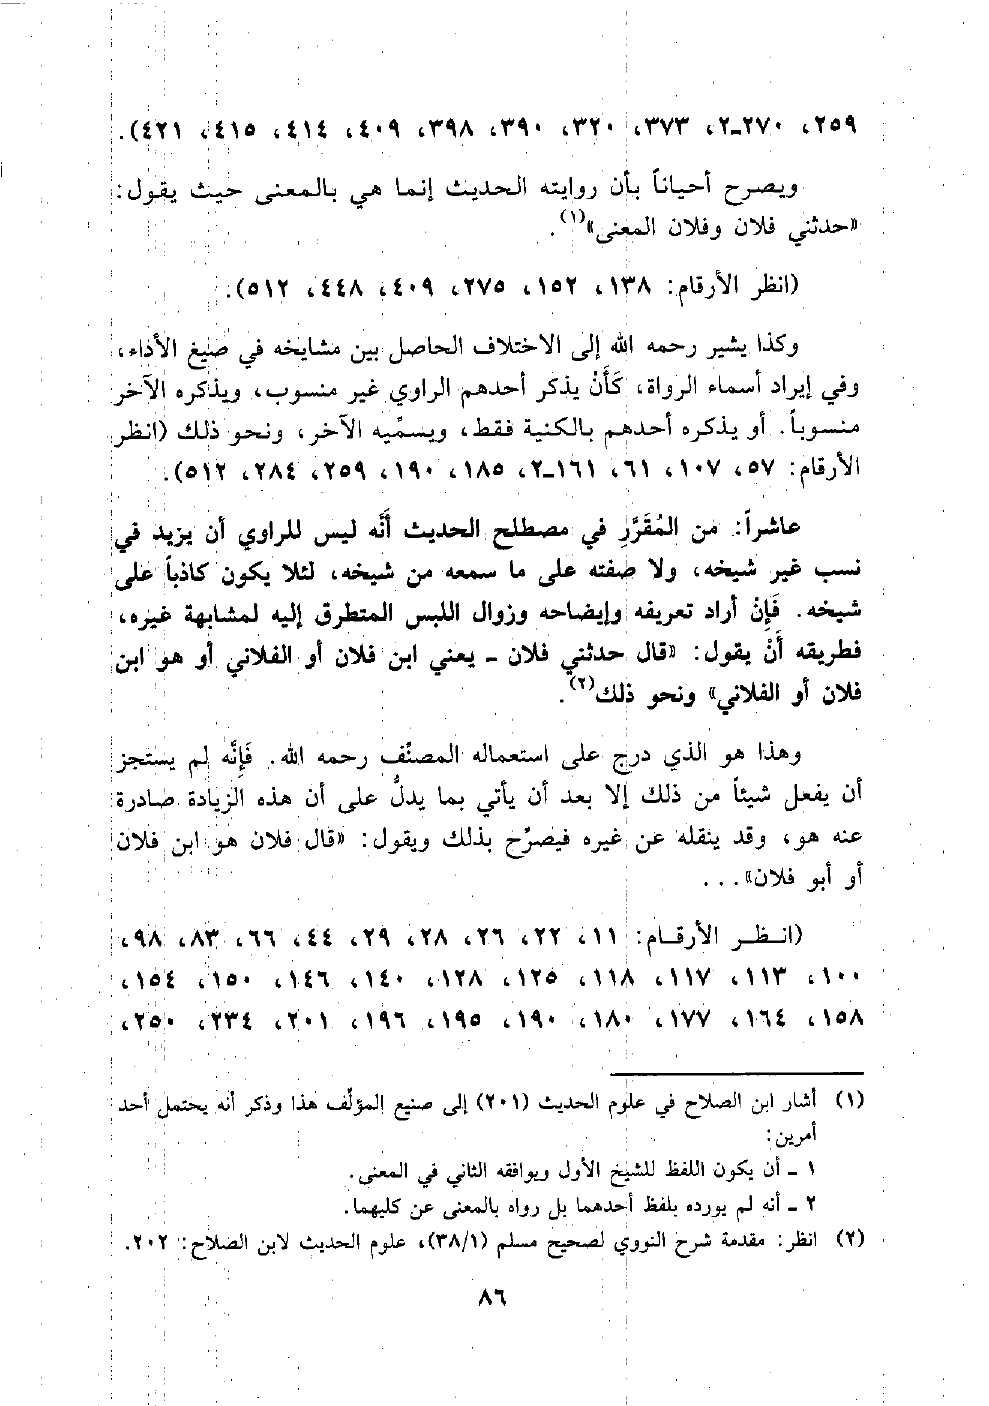 ٢٥٩، ٢٧٠-٢، ٣٧٣، ٣٢٠، ٣٩٠، ٣٩٨، ٤٠٩، ٤١٤، ٤١٥، ٤٢١).
ويصرح أحياناً بأن روايته الحديث إنما هي بالمعنى حيث يقول:
«حدثني فلان وفلان المعنى»(١).
(انظر الأرقام: ١٣٨، ١٥٢، ٢٧٥، ٤٠٩، ٤٤٨، ٥١٢).
وكذا يشير رحمه الله إلى الاختلاف الحاصل بين مشايخه في صيغ الأداء،
وفي إيراد أسماء الرواة، كَأَنْ يذكر أحدهم الراوي غير منسوب، ويذكره الآخر
منسوباً. أو يذكره أحدهم بالكنية فقط، ويسمِّيه الآخر، ونحو ذلك (انظر
الأرقام: ٥٧، ١٠٧، ٦١، ١٦١-٢، ١٨٥، ١٩٠، ٢٥٩، ٢٨٤، ٥١٢).
عاشراً: من المُقَرَّرِ في مصطلح الحديث أَنَّه ليس للراوي أن يزيد في
نسب غير شيخه، ولا صفته على ما سمعه من شيخه، لئلا يكون كاذباً على
شيخه. فَإِنْ أراد تعريفه وإيضاحه وزوال اللبس المتطرق إليه لمشابهة غيره،
فطريقه أَنْ يقول: «قال حدثني فلان - يعني ابن فلان أو الفلاني أو هو ابن
فلان أو الفلاني» ونحو ذلك(٢).
وهذا هو الذي درج على استعماله المصنِّف رحمه الله. فَإِنَّه لم يستجز
أن يفعل شيئاً من ذلك إلا بعد أن يأتي بما يدلُّ على أن هذه الزيادة صادرة
عنه هو، وقد ينقله عن غيره فيصرِّح بذلك ويقول: «قال فلان هو ابن فلان
أو أبو فلان»...
(انظر الأرقام: ١١، ٢٢، ٢٦، ٢٨، ٢٩، ٤٤، ٦٦، ٨٣، ٩٨،
١٠٠، ١١٣، ١١٧، ١١٨، ١٢٥، ١٢٨، ١٤٠، ١٤٦، ١٥٠، ١٥٤،
١٥٨، ١٦٤، ١٧٧، ١٨٠، ١٩٠، ١٩٥، ١٩٦، ٢٠١، ٢٣٤، ٢٥٠،
(١) أشار ابن الصلاح في علوم الحديث (٢٠١) إلى صنيع المؤلِّف هذا وذكر أنه يحتمل أحد
أمرين:
١ - أن يكون اللفظ للشيخ الأول ويوافقه الثاني في المعنى.
٢ - أنه لم يورده بلفظ أحدهما بل رواه بالمعنى عن كليهما.
(٢) انظر: مقدمة شرح النووي لصحيح مسلم (٣٨/١)، علوم الحديث لابن الصلاح: ٢٠٢.
٨٦